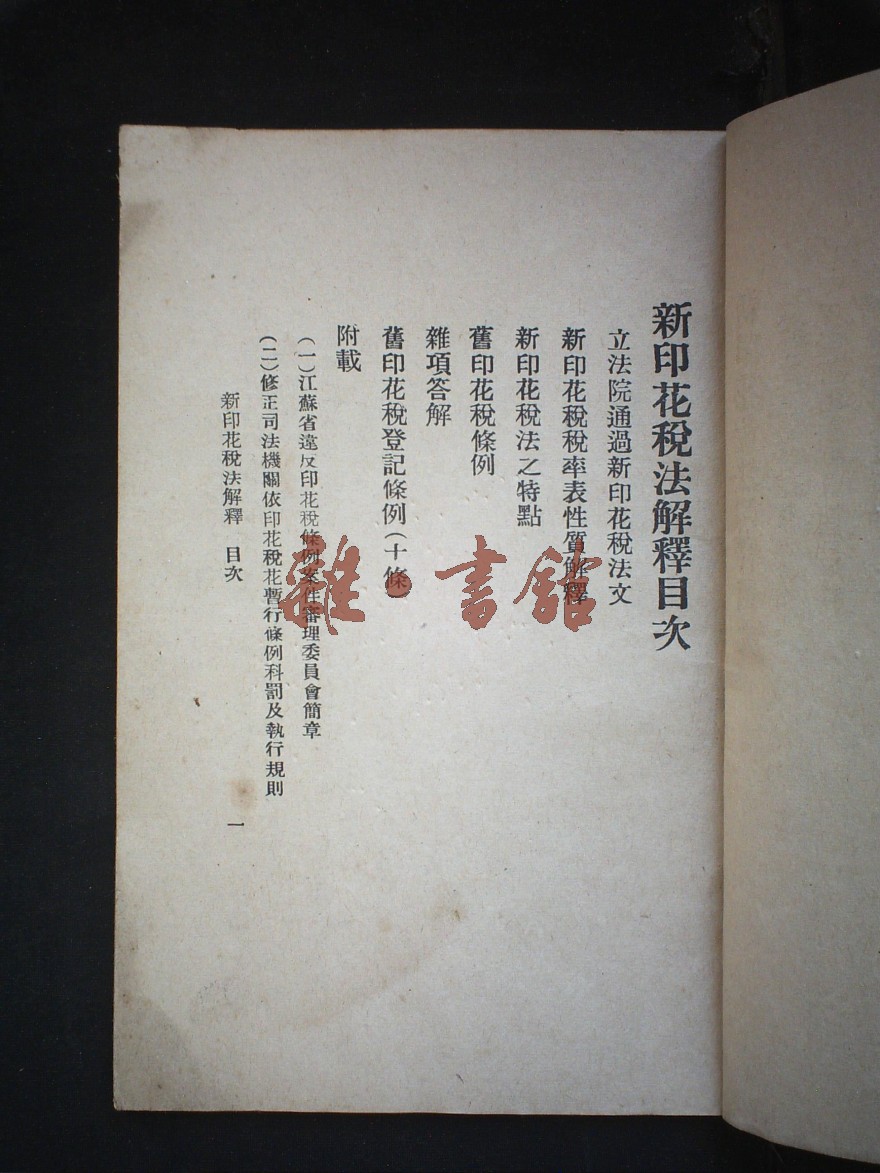 新印花稅法解釋目次
立法院通過新印花稅法文
新印花稅稅率表性質解釋
新印花稅法之特點
舊印花稅條例
雜項答解
舊印花稅登記條例(十條)
附載
(一)江蘇省違反印花稅條例案件審理委員會簡章
(二)修正司法機關依印花稅花暫行條例科罰及執行規則
新印花稅法解釋 目次
一
雜·書館